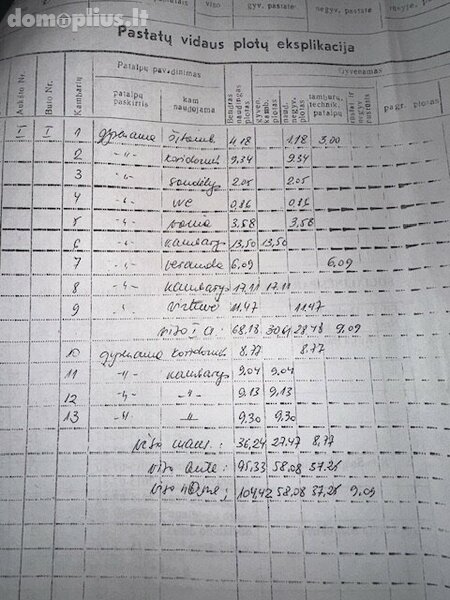 domoplius.lt
viso gyv. pastate negyv. pastate
Pastatų vidaus plotų eksplikacija
Aukšto Nr. Buto Nr. Kambarių Patalpų pavadinimas Gyvenamas
patalpų paskirtis kam naudojama Bendras naudingas plotas gyven. kamb. plotas naud. negyv. plotas tambūrų, technik. patalpų pagr. plotas
I I 1 gyvenama 4,18 1,18 3,00
2 -"- koridorius 9,34 9,34
3 -"- sandėlys 2,05 2,05
4 -"- WC 0,86 0,86
5 -"- vonia 3,58 3,58
6 -"- kambarys 13,50 13,50
7 -"- veranda 6,09 6,09
8 -"- kambarys 17,11 17,11
9 -"- virtuvė 11,47 11,47
viso I a 68,18 30,61 28,48 9,09
10 gyvenama koridorius 8,77 8,77
11 -"- kambarys 9,04 9,04
12 -"- -"- 9,13 9,13
13 -"- -"- 9,30 9,30
viso mans. 36,24 27,47 8,77
viso bute: 95,33 58,08 37,25
viso name: 104,42 58,08 37,25 9,09